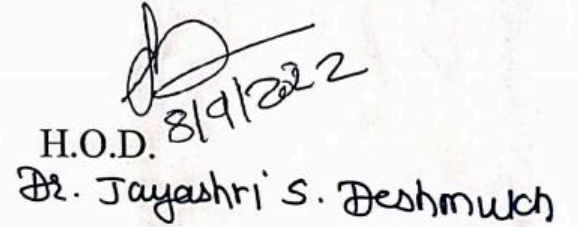 8/9/2022
H.O.D.
Dr. Jayashri S. Deshmukh